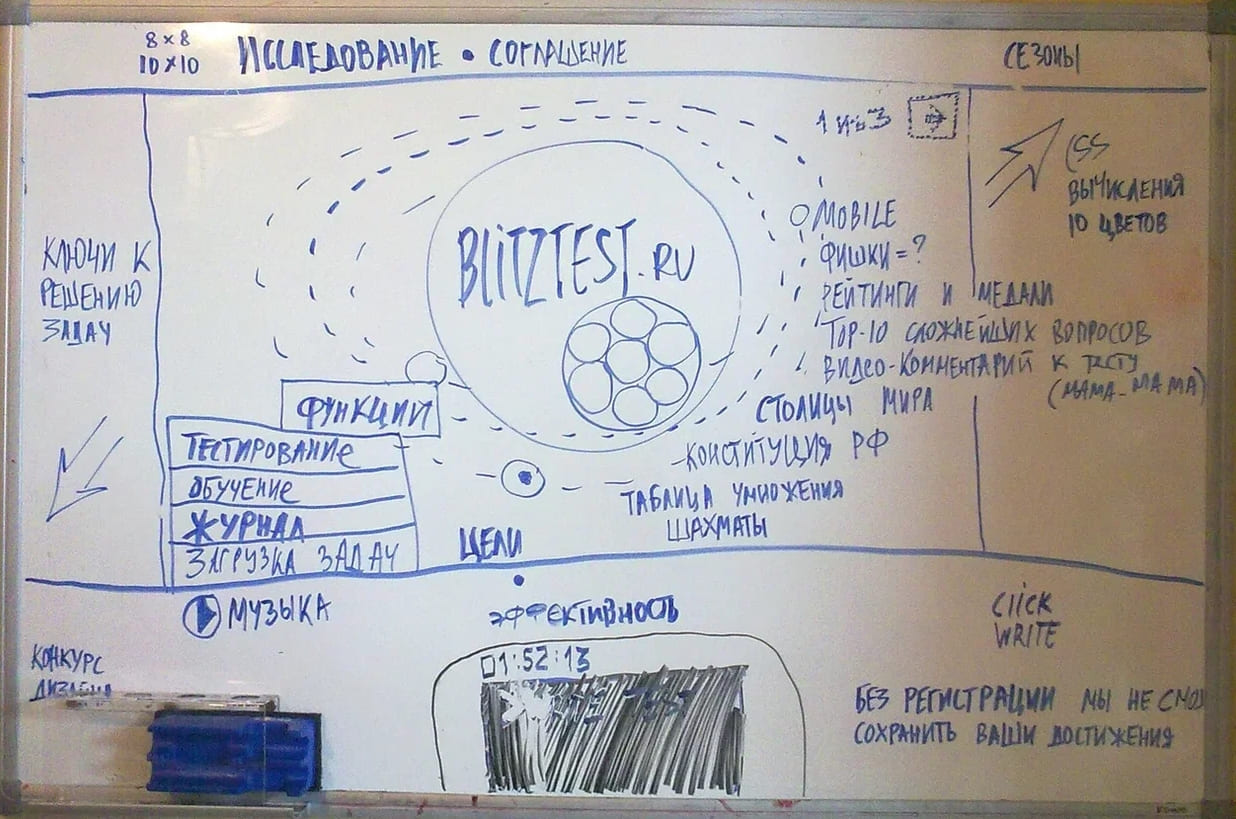 8×8
10×10
ИССЛЕДОВАНИЕ • СОГЛАШЕНИЕ
СЕЗОНЫ
1 из 3
CSS
ВЫЧИСЛЕНИЯ
10 ЦВЕТОВ
КЛЮЧИ К
РЕШЕНИЮ
ЗАДАЧ
BLITZTEST.RU
MOBILE
ФИШКИ = ?
РЕЙТИНГИ И МЕДАЛИ
TOP-10 СЛОЖНЕЙШИХ ВОПРОСОВ
ВИДЕО-КОММЕНТАРИЙ К ТЕСТУ
(МАМА-МАМА)
СТОЛИЦЫ МИРА
-КОНСТИТУЦИЯ РФ
ТАБЛИЦА УМНОЖЕНИЯ
ШАХМАТЫ
ФУНКЦИИ
ТЕСТИРОВАНИЕ
ОБУЧЕНИЕ
ЖУРНАЛ
ЗАГРУЗКА ЗАДАЧ
ЦЕЛИ
МУЗЫКА
ЭФФЕКТИВНОСТЬ
01:52:13
CLICK
WRITE
КОНКУРС
ДИЗАЙНА
БЕЗ РЕГИСТРАЦИИ МЫ НЕ СМО
СОХРАНИТЬ ВАШИ ДОСТИЖЕНИЯ